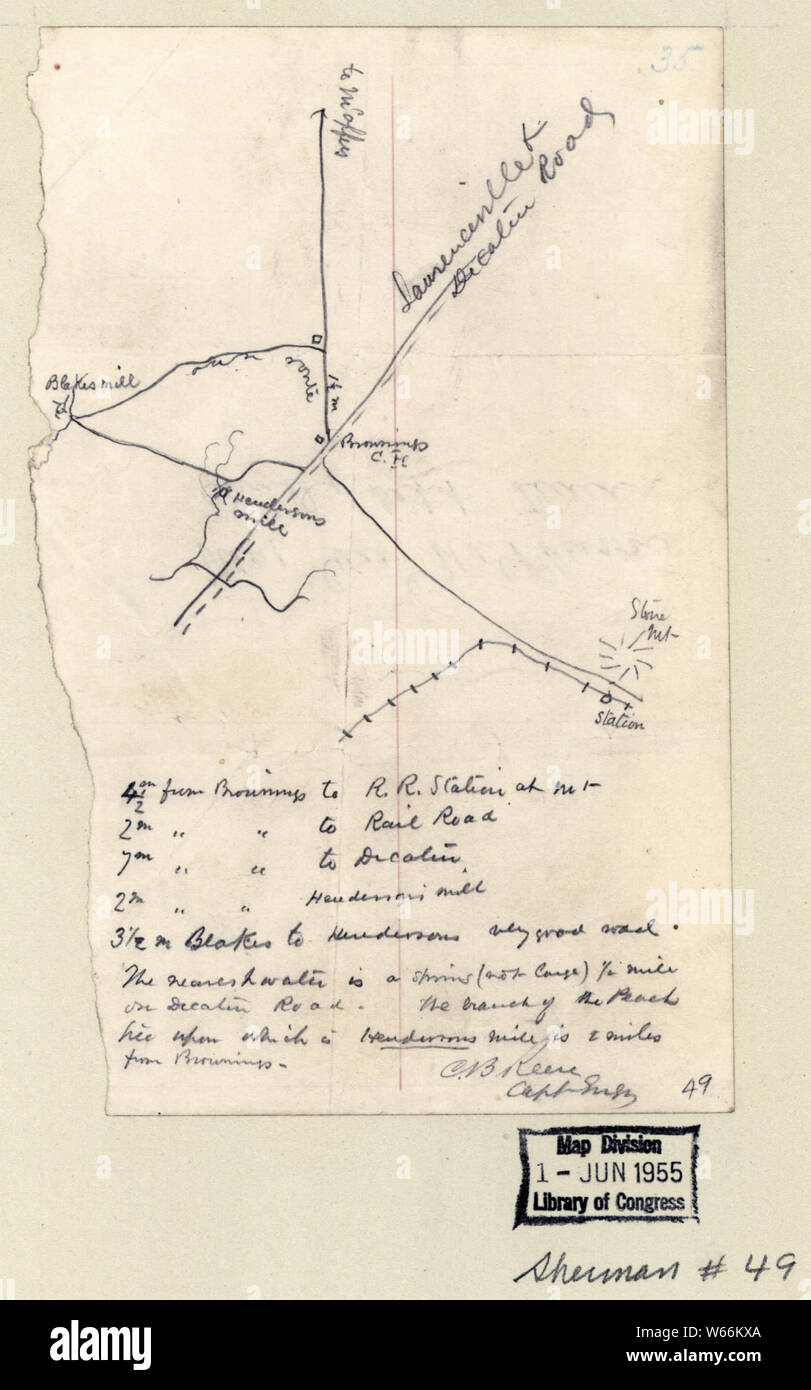 35
to McAffees
Lawrenceville &
Decatur Road
Blakes mill
our route
1½ m
Brownings
C.H
Hendersons
mill
Stone
Mt
Station
4½ m from Brownings to R. R. Station at Mt
2m " " to Rail Road
7m " " to Decatur
2m " " Hendersons mill
3½ m Blakes to Hendersons very good road.
The nearest water is a spring (not large) ½ mile
on Decatur Road. The branch of the Peach
tree upon which is Hendersons mill is 2 miles
from Brownings -
C.B Reese
Capt Engr
49
Map Division
1 - JUN 1955
Library of Congress
Sherman # 49
alamy
alamy
Image ID: W66KXA
www.alamy.com